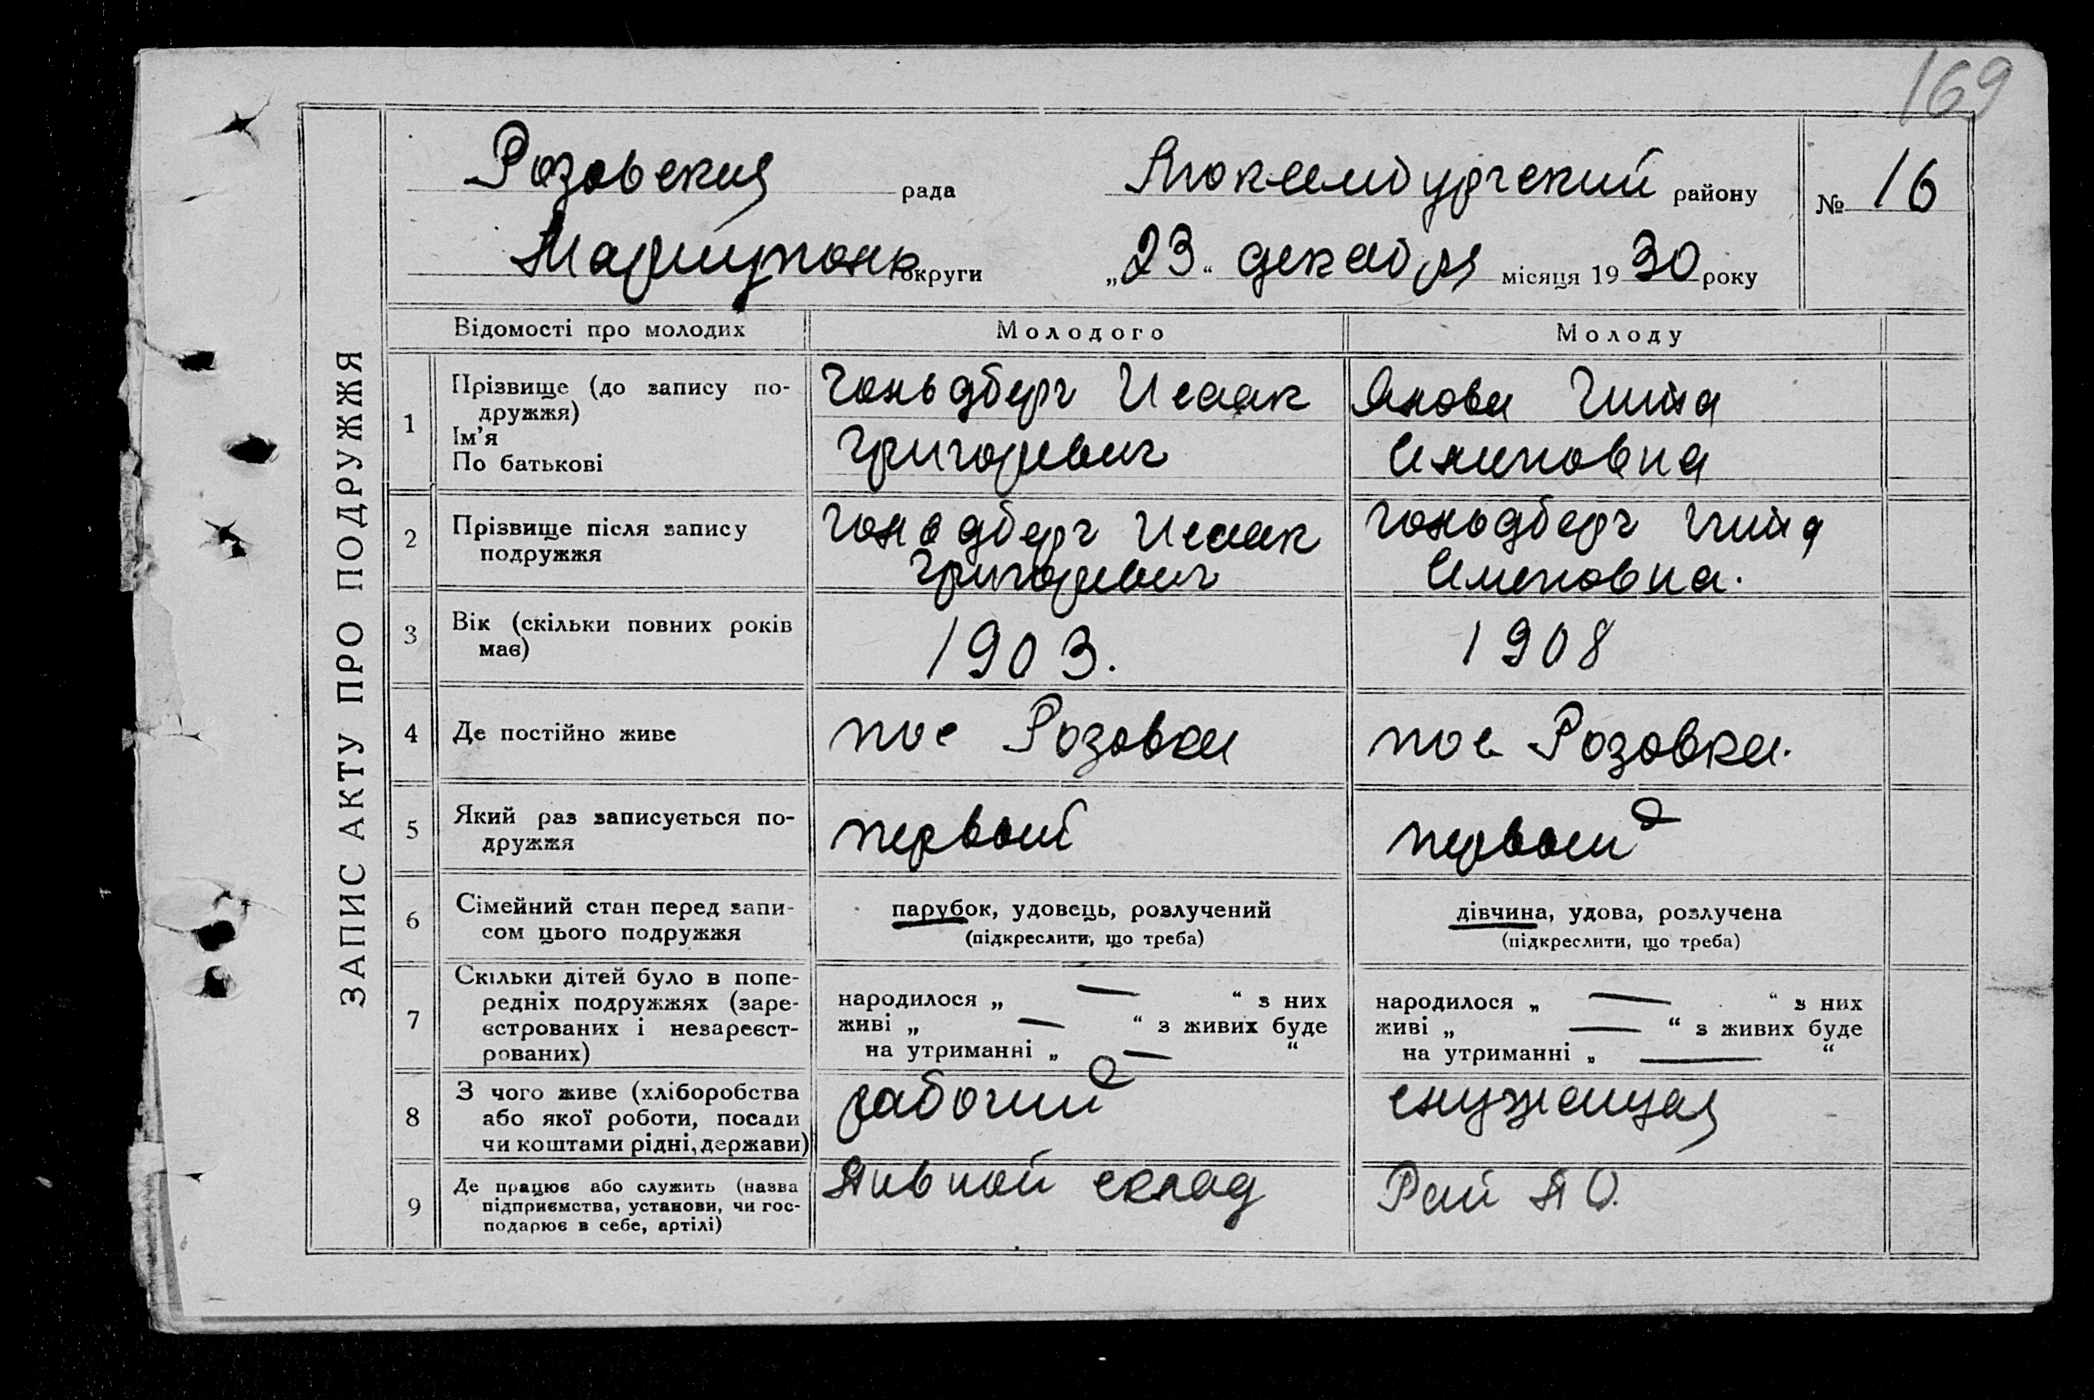 169
ЗАПИС АКТУ ПРО ПОДРУЖЖЯ
Розовская рада Люксембургский району № 16
Мариупольск округи „23“ декабря місяця 1930 року
Відомості про молодих Молодого Молоду
1 Прізвище (до запису по-
дружжя)
Ім’я
По батькові
Гольдберг Исаак
Григоревич
Янова Гита
Семеновна
2 Прізвище після запису
подружжя
Гольдберг Исаак
Григоревич
Гольдберг Гита
Семеновна.
3 Вік (скільки повних років
має)
1903.
1908
4 Де постійно живе
пос Розовка
пос Розовка.
5 Який раз записується по-
дружжя
первый
первый
6 Сімейний стан перед запи-
сом цього подружжя
парубок, удовець, розлучений
(підкреслити, що треба)
дівчина, удова, розлучена
(підкреслити, що треба)
7 Скільки дітей було в попе-
редніх подружжях (заре-
єстрованих і незареєст-
рованих)
народилося „ — “ з них
живі „ — “ з живих буде
на утриманні „ — “
народилося „ — “ з них
живі „ — “ з живих буде
на утриманні „ — “
8 З чого живе (хліборобства
або якої роботи, посади
чи коштами рідні, держави)
рабочий
служащая
9 Де працює або служить (назва
підприємства, установи, чи гос-
подарює в себе, артілі)
Пивной склад
Рай П О.